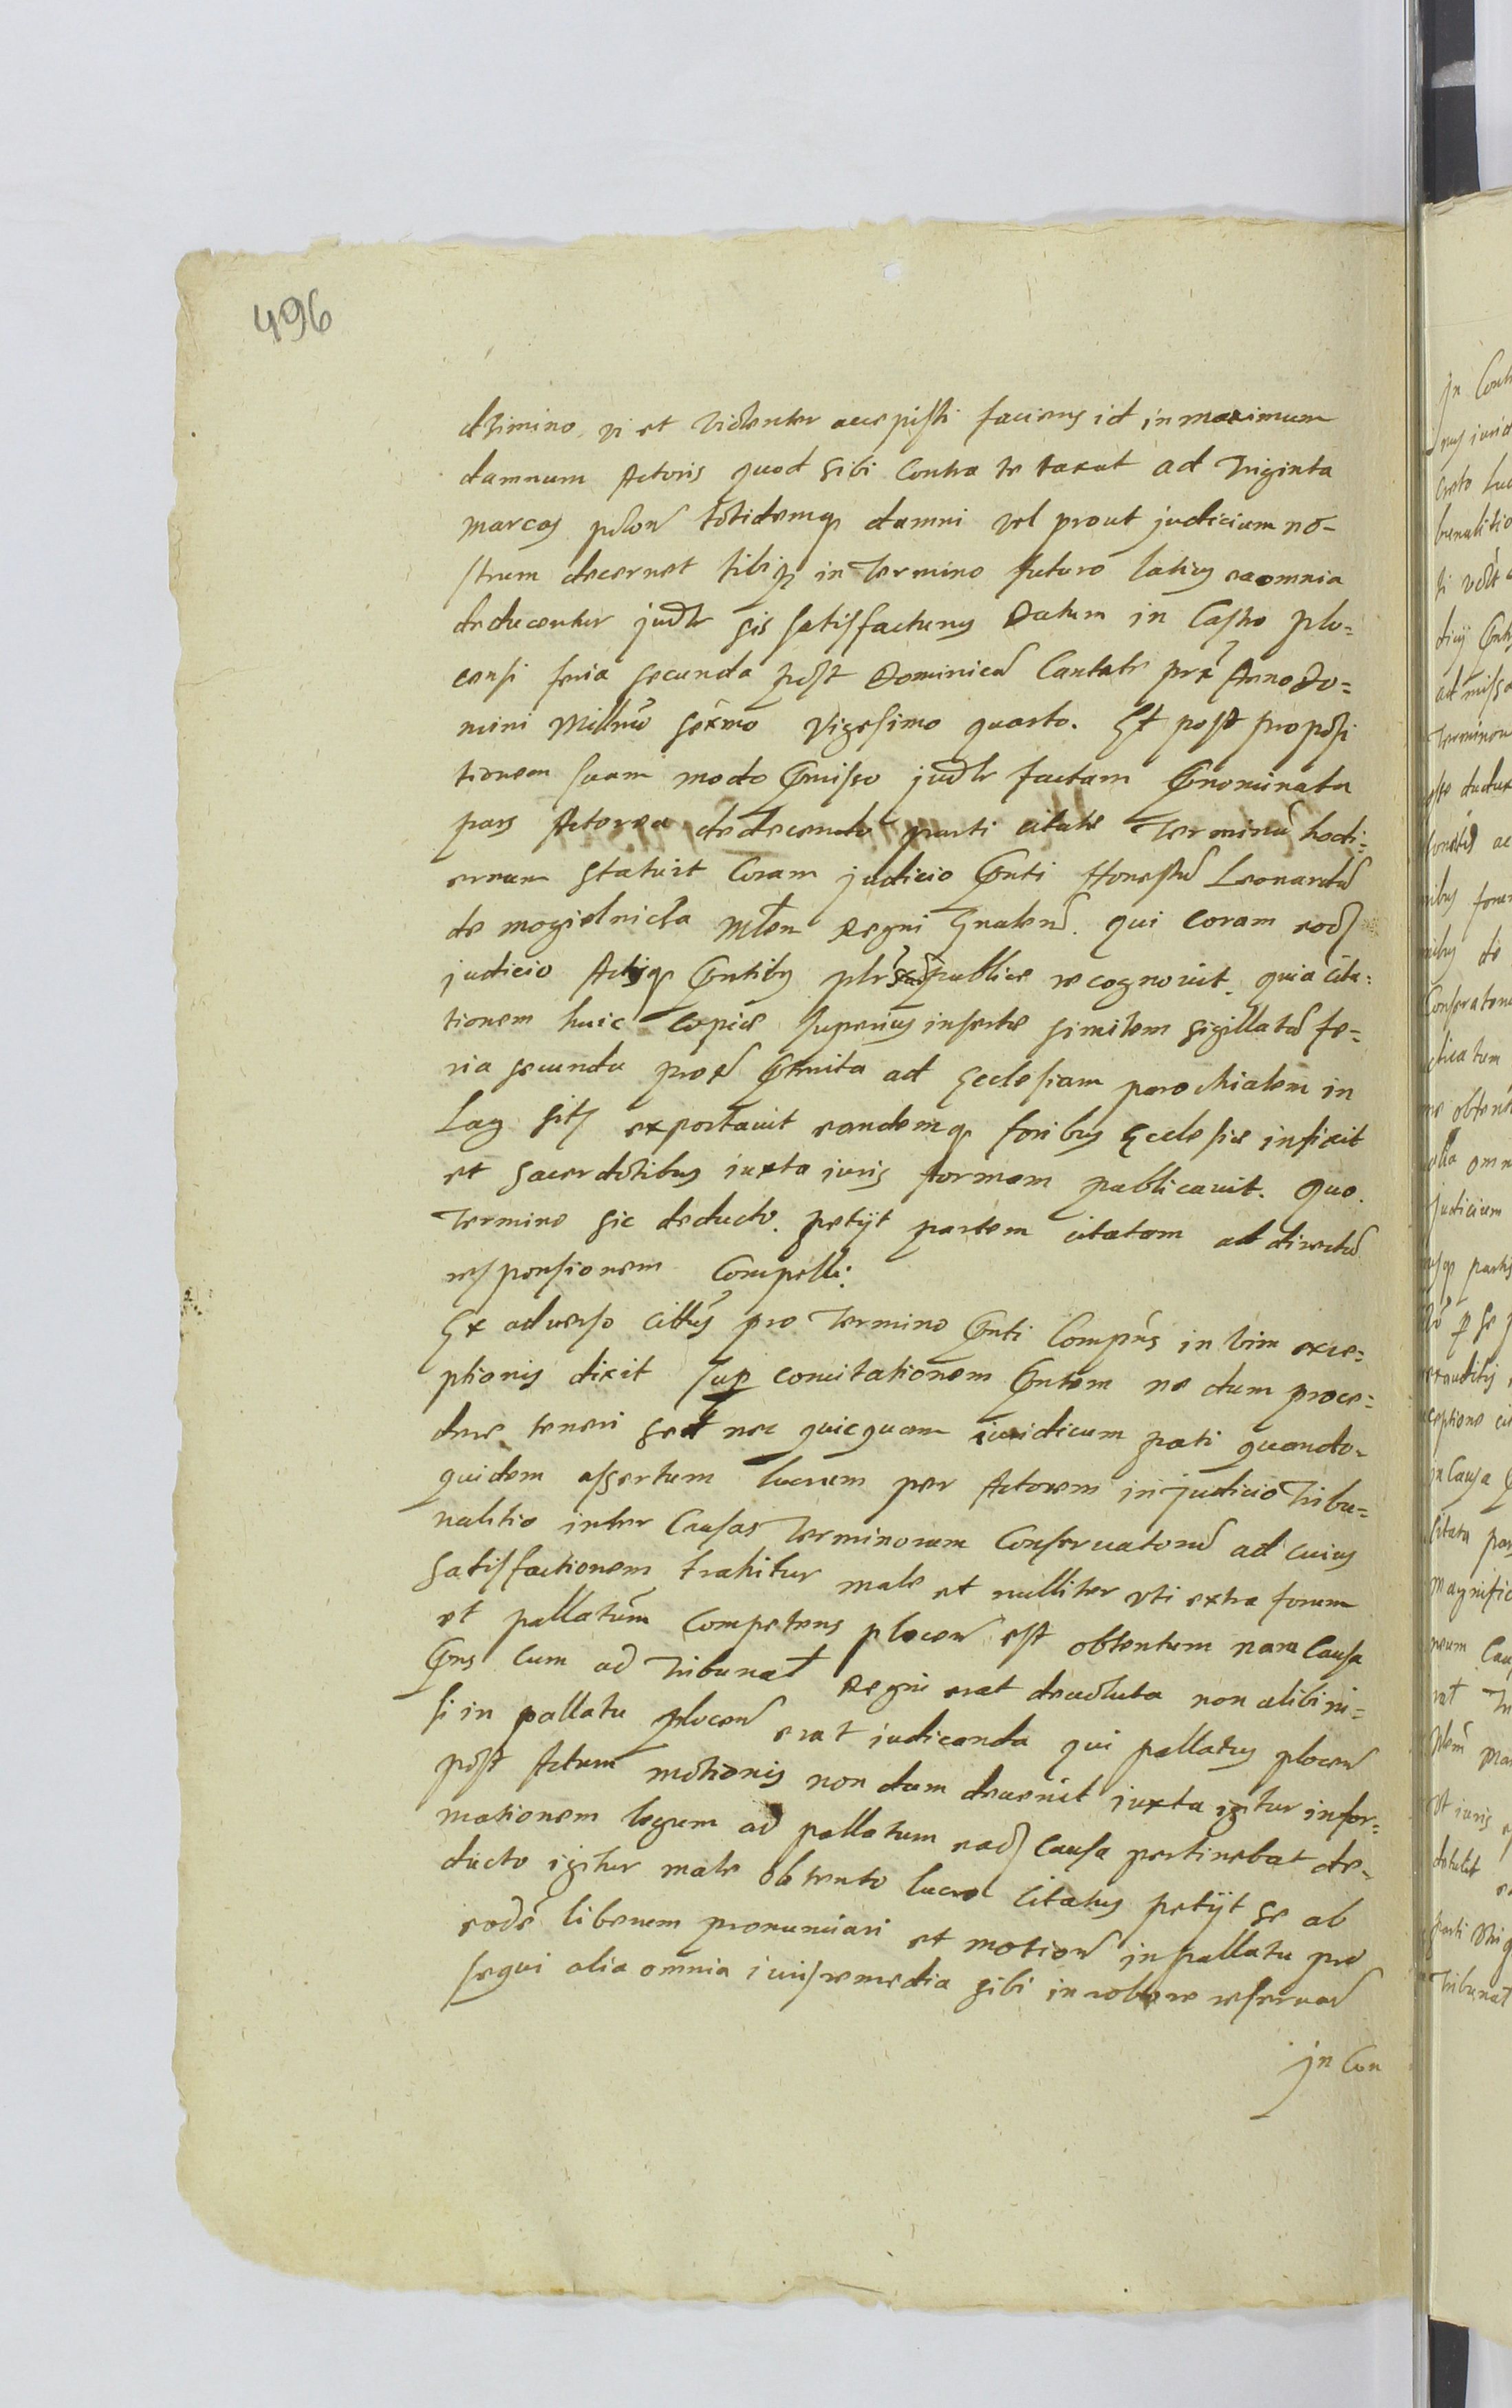 496
dissimino vi et violenter accepisti faciens id in maximum
damnum Actoris quod sibi contra te taxat ad triginta
marcas polon totidemq damni vel prout judicium no-
strum decernet tibiq in termino futuro latius ea omnia
deducentur judr sis satisfacturus Datum in Castro plo=
censi feria secunda post Dominica Cantate prox Anno Do=
mini Millmo sexmo vigesimo quarto. Et post proposi
tionem suam modo pmisso judr factam pnominata
pars Actorea de docendo parti citatae Terminu hodi=
ernum statuit coram judicio pnti Honestu Leonardu
de mogielnicza Mlem Regni gnalem. qui coram eod
judicio Actisq pntibus plr publice recognovit. quia cita=
tionem huic copiae superius insertae similem sigillata fe=
ria secunda prox pterita ad Ecclesiam parochialem in
Lag sitz exportavit eandemq foribus Ecclesiae infixit
et sacerdotibus iuxta iuris formam publicavit. Quo
Termino sic deducto. petijt partem citatam ad directu
responsionem Compelli.
Ex adverso cittus pro Termino pnti Compns in vim exce=
ptionis dixit sup concitationem pntem ne dum proce=
dere teneri sed nec quicquam iuridicum pati quando-
quidem assertum lucrum per Actorem in judicio Tribu=
nalitio inter Causas Terminorum Conservatoru ad cuius
satisfactionem trahitur male et nulliter vti extra forum
et pallatum Competens plocen est obtentum nam Causa
pns cum ad Tribunal Regni erat devoluta non alibi ni=
si in pallatu plocen erat iudicanda qui pallatus plocen
post Actum motionis non dum devenit iuxta igitur infor=
mationem legum ad pallatum ead Causa pertinebat de-
ducto igitur male obtento lucro Citatus petijt se ab
eode liberum pronunciari et motion in pallatu pro
sequi alia omnia iuris remedia sibi in robore reservan
Jn Con